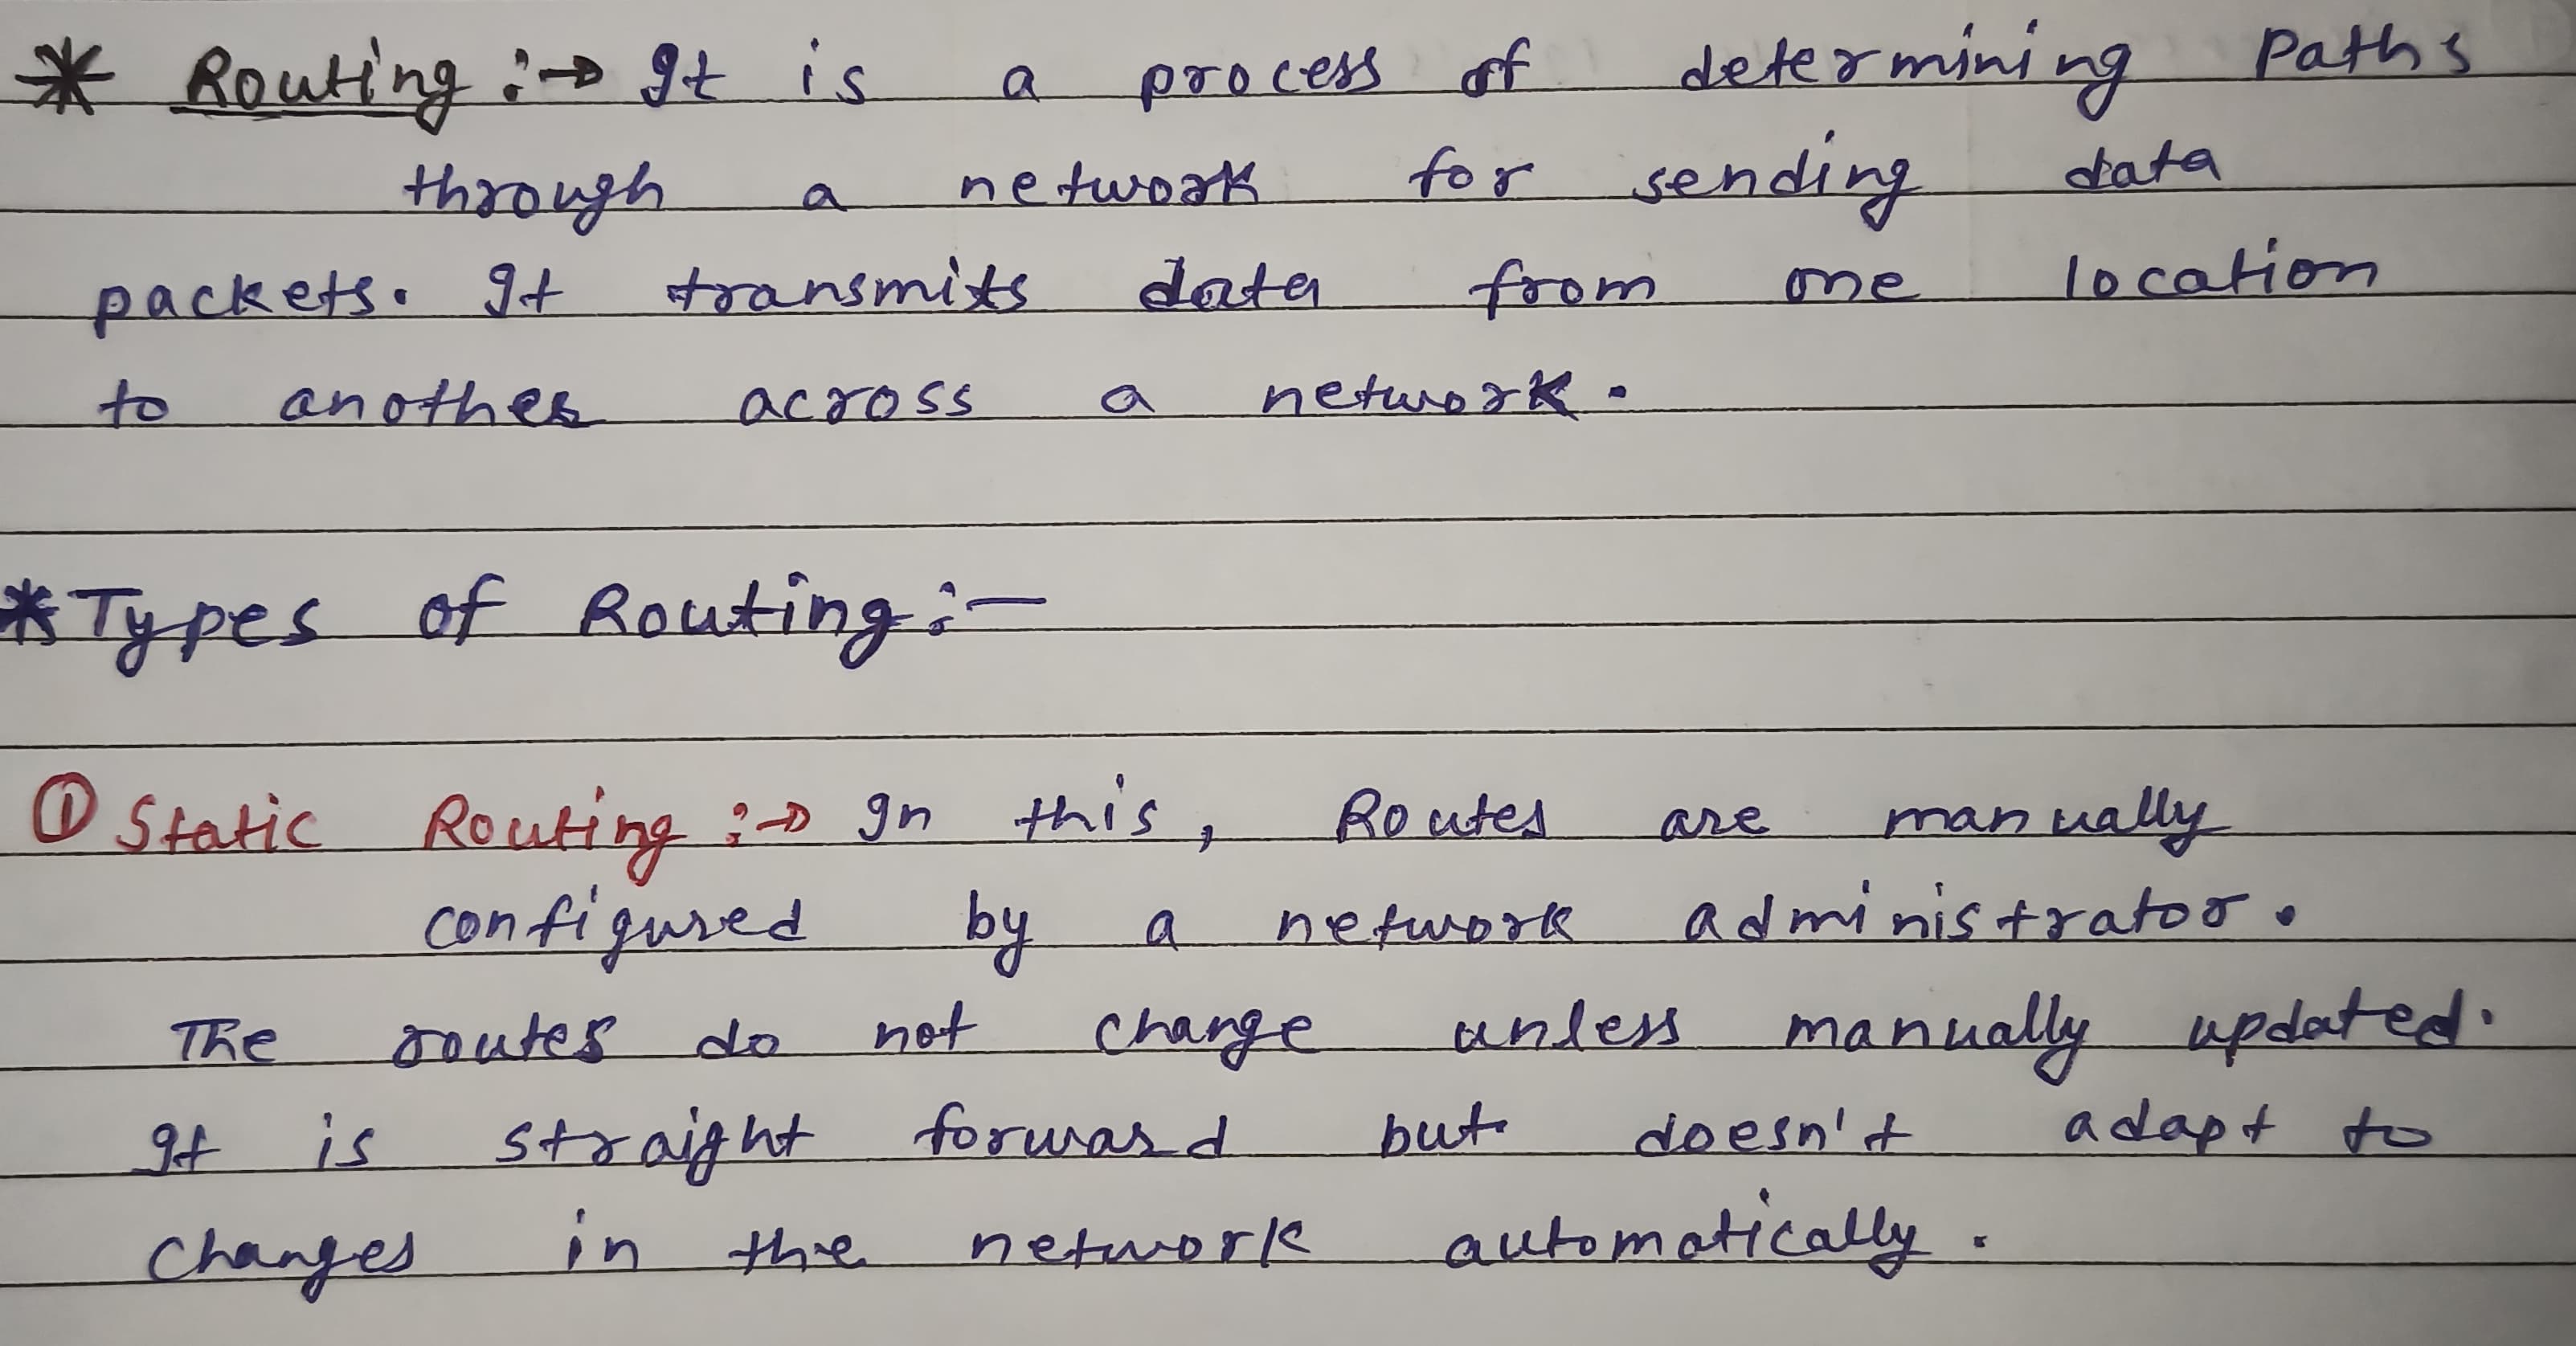 * Routing :→ It is a process of determining Paths
through a network for sending data
packets. It transmits data from one location
to another across a network.
* Types of Routing :-
① Static Routing :→ In this, Routes are manually
configured by a network administrator.
The routes do not change unless manually updated.
It is straight forward but doesn't adapt to
changes in the network automatically.